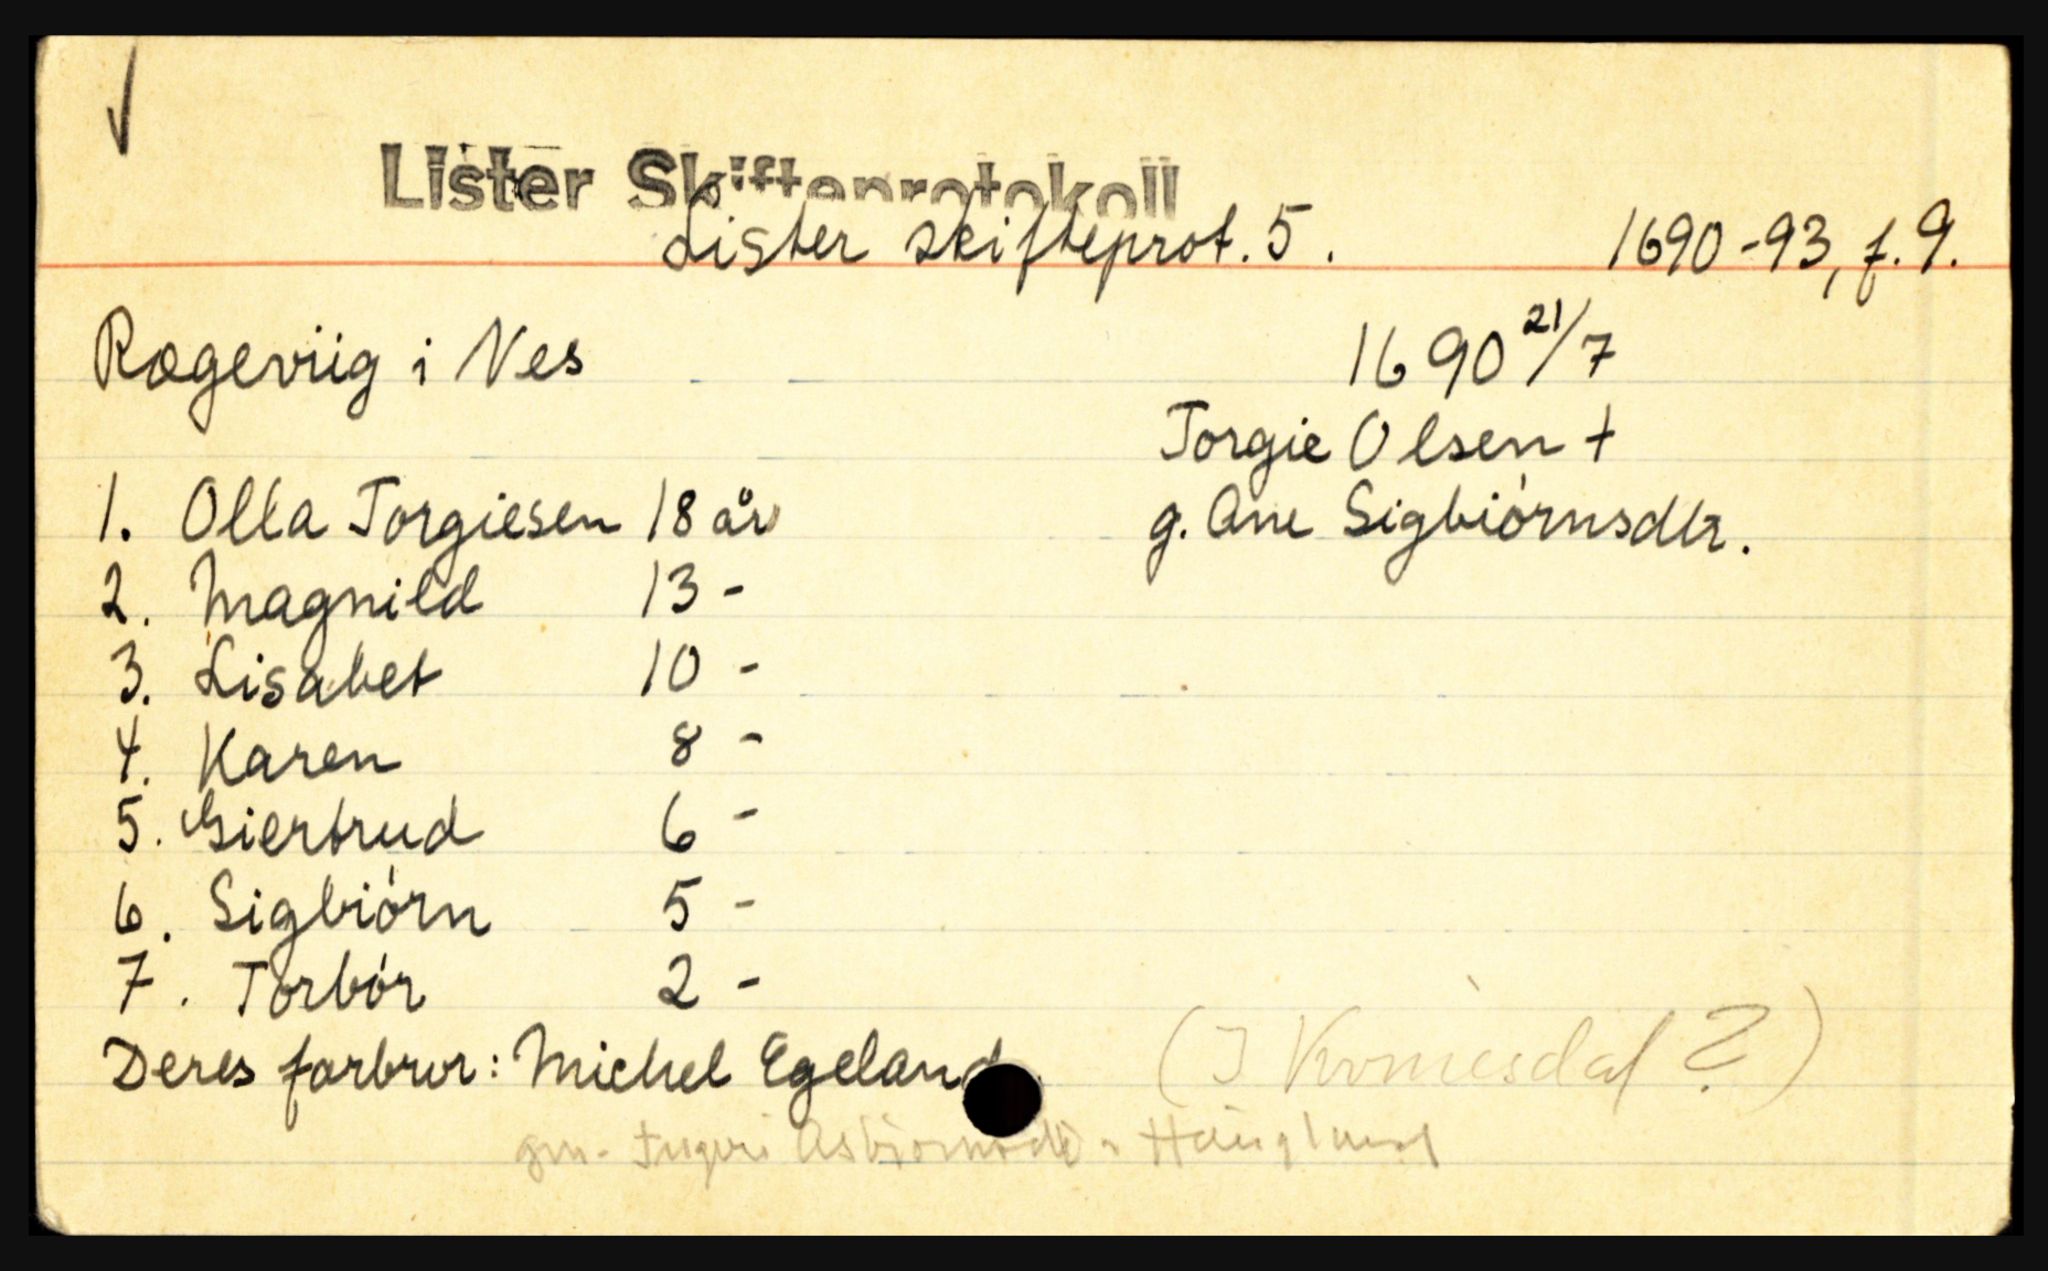 Lister Skifteprotokoll
Lister skifteprot. 5. 1690-93, f. 9.
Rægeviig i Nes 1690 21/7
Torgie Olsen †
1. Olla Torgiesen 18 år g. Ane Sigbiórnsdtr.
2. Magnild 13 -
3. Lisabet 10 -
4. Karen 8 -
5. Giertrud 6 -
6. Sigbiórn 5 -
7. Torbór 2 -
Deres farbror: Michel Egeland (I Kvinesdal ?)
gm. Asbjørnsdtr Haugland